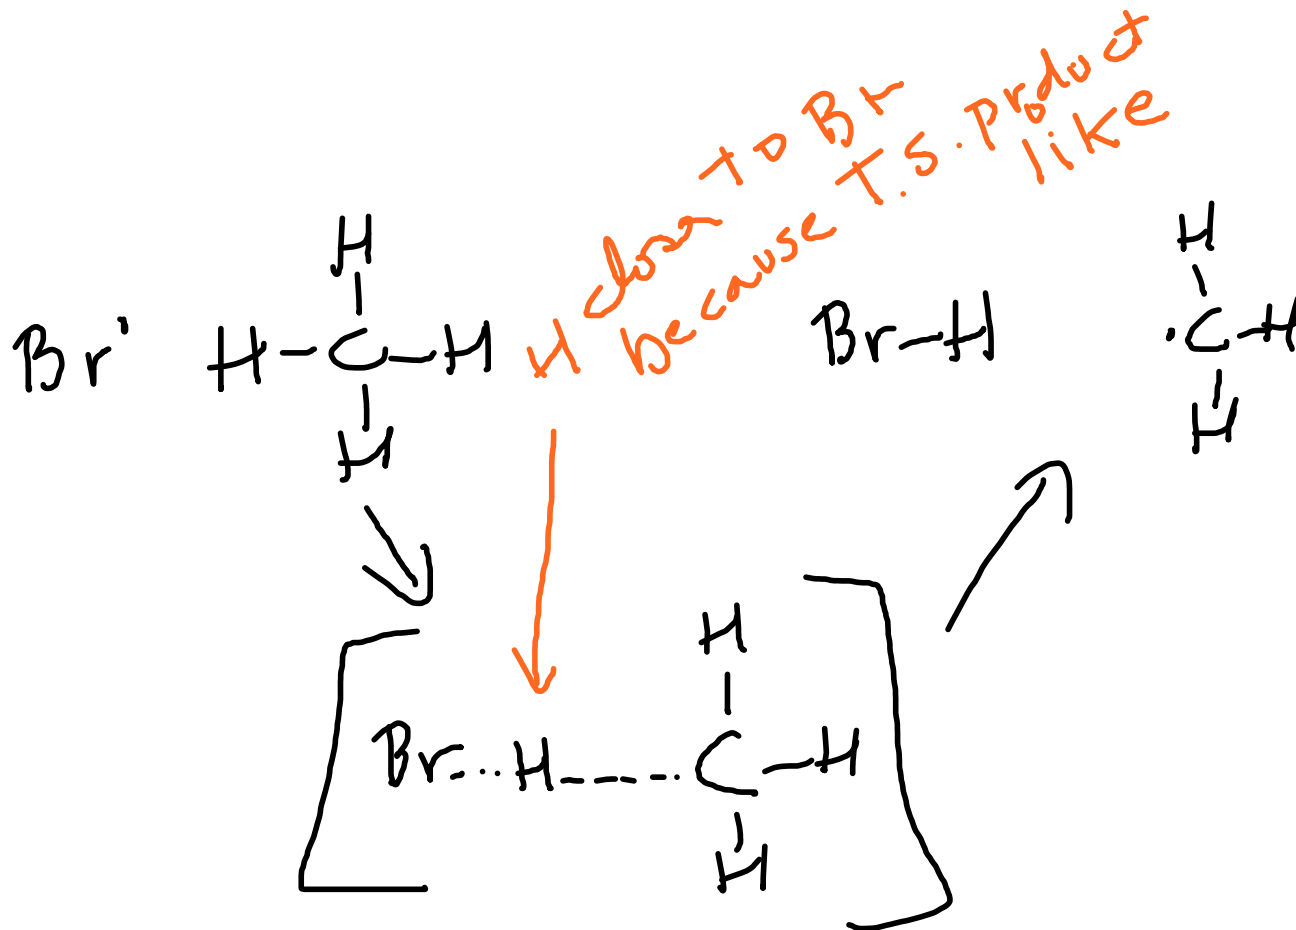 H closer to Br
because T.S. product
like
H
Br· H-C-H
H
H
Br-H ·C-H
H
H
Br...H-----C-H
H